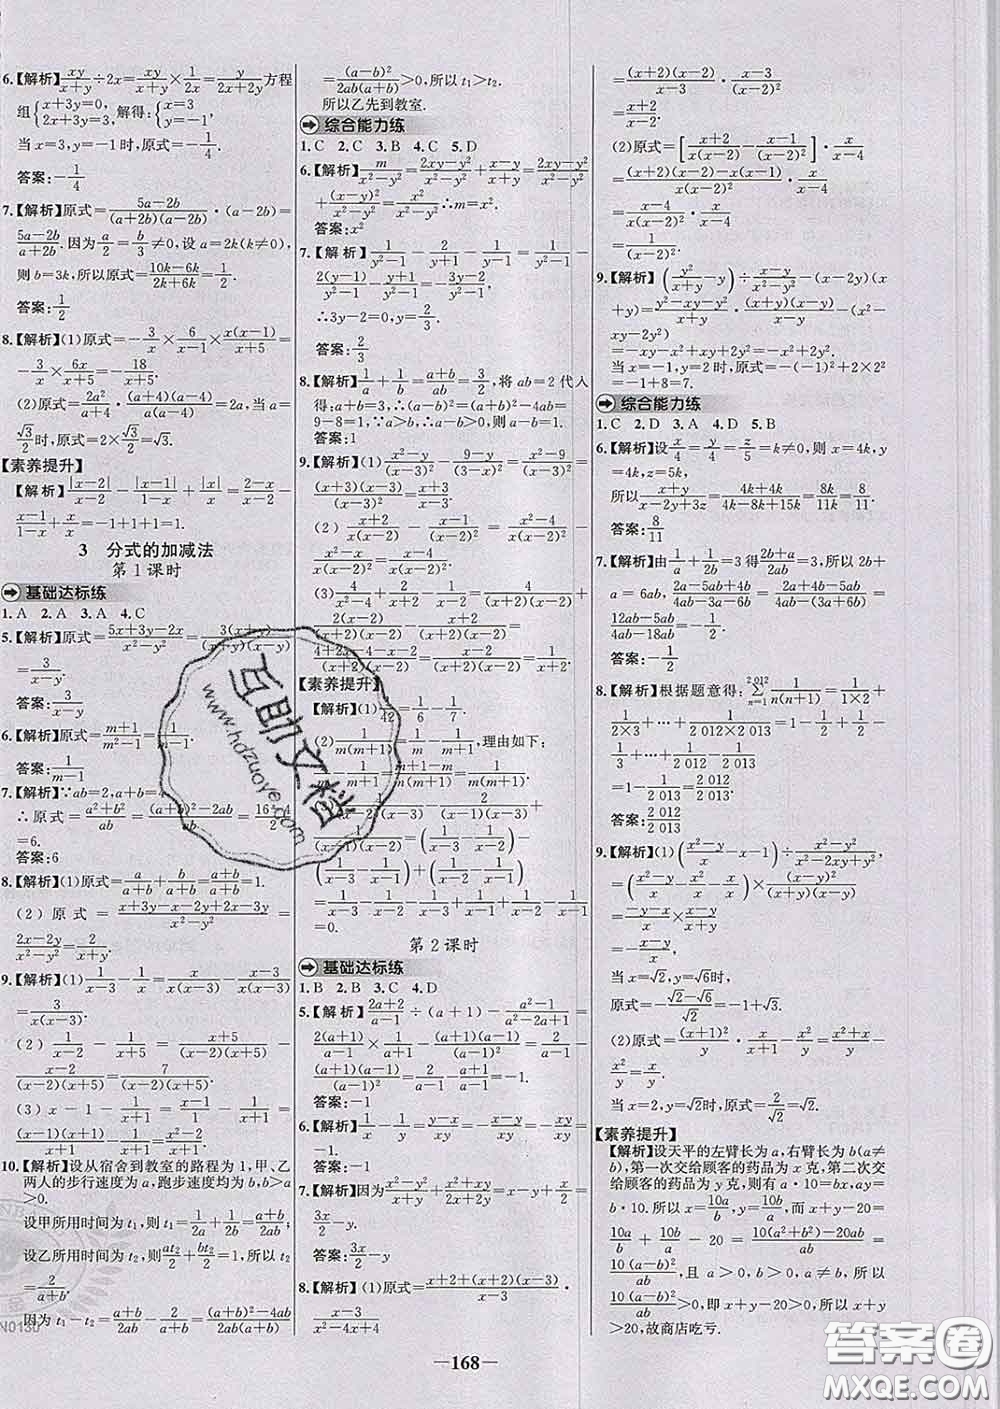 6.【解析】xy/(x+y)÷2x=xy/(x+y)×1/2x=y/(2x+2y)方程
组{x+3y=0, 2x+3y=3,解得:{x=3 y=-1,
当x=3,y=-1时,原式=-1/4.
答案:-1/4
7.【解析】原式=(5a-2b)/((a+2b)(a-2b))·(a-2b)=
(5a-2b)/(a+2b).因为a/2=b/3≠0,设a=2k(k≠0),
则b=3k,所以原式=(10k-6k)/(2k+6k)=1/2.
答案:1/2
8.【解析】(1)原式=-3/x×6/(x-1)×x(x-1)/(x+5)=
-3/x×6x/(x+5)=-18/(x+5).
(2)原式=2a²/(a+4)·(a+4)(a-4)/(a(a-4))=2a,当a=
√3/2时,原式=2×√3/2=√3.
【素养提升】
【解析】|x-2|/(x-2)-|x-1|/(1-x)+|x|/x=(2-x)/(x-2)-
(x-1)/(1-x)+x/x=-1+1+1=1.
3 分式的加减法
第1课时
基础达标练
1.A 2.A 3.A 4.C
5.【解析】原式=(5x+3y-2x)/(x²-y²)=3(x+y)/((x+y)(x-y))
=3/(x-y).
答案:3/(x-y)
6.【解析】原式=(m+1)/(m²-1)=1/(m-1).
答案:1/(m-1)
7.【解析】∵ab=2,a+b=4
∴原式=(a²+b²)/ab=((a+b)²-2ab)/ab=(16-4)/2
=6.
答案:6
8.【解析】(1)原式=a/(a+b)+b/(a+b)=(a+b)/(a+b)=1.
(2)原式=(x+3y-x-2y+2x-3y)/(x²-y²)=
(2x-2y)/(x²-y²)=2/(x+y).
9.【解析】(1)1/(x-3)-1/x=x/(x(x-3))-(x-3)/(x(x-3))=
3/(x(x-3)).
(2)1/(x-2)-1/(x+5)=(x+5)/((x-2)(x+5))-
(x-2)/((x-2)(x+5))=7/((x-2)(x+5)).
(3)x-1-1/(x+1)=(x-1)/1-1/(x+1)=
(x-1)(x+1)/(x+1)-1/(x+1)=(x²-2)/(x+1).
10.【解析】设从宿舍到教室的路程为1,甲、乙
两人的步行速度为a,跑步速度均为b,b>a
>0.
设甲所用时间为t₁,则t₁=1/2a+1/2b=(a+b)/2ab;
设乙所用时间为t₂,则at₂/2+bt₂/2=1,所以t₂
=2/(a+b).
因为t₁-t₂=(a+b)/2ab-2/(a+b)=((a+b)²-4ab)/(2ab(a+b))
=(a-b)²/(2ab(a+b))>0,所以t₁>t₂.
所以乙先到教室.
综合能力练
1.C 2.C 3.B 4.C 5.D
6.【解析】m/(x²-y²)=(2xy-y²)/(x²-y²)+(x-y)/(x+y)=(2xy-y²)/(x²-y²)
+(x-y)²/(x²-y²)=x²/(x²-y²)∴m=x².
答案:x²
7.【解析】1/(y²-1)-2/(y+1)-1/(1-y)=1/(y²-1)-
2(y-1)/(y²-1)+(y+1)/(y²-1)=-(3y-2)/(y²-1)=0,
∴3y-2=0,y=2/3.
答案:2/3
8.【解析】1/a+1/b=(a+b)/ab=3/2,将ab=2代入
得:a+b=3,∴(a-b)²=(a+b)²-4ab=
9-8=1,∵a>b,∴a-b>0,则a-b=1.
答案:1
9.【解析】(1)x²/(x-3)²-9/(3-x)²=(x²-9)/(x-3)²=
(x+3)(x-3)/(x-3)²=(x+3)/(x-3).
(2)(x+2)/(x(x-2))-x/(x-2)²=(x²-4)/(x(x-2)²)-
x²/(x(x-2)²)=-4/(x(x-2)²).
(3)4/(x²-4)+2/(x+2)-1/(x-2)=
(4+2x-4-x-2)/((x+2)(x-2))=(x-2)/((x+2)(x-2))=1/(x+2).
【素养提升】
【解析】(1)1/42=1/6-1/7.
(2)1/(m(m+1)),理由如下:
1/m-1/(m+1)=(m+1-m)/(m(m+1))=1/(m(m+1)).
+(1/(x-3)-1/(x-2))-
(1/(x-3)-1/(x-1))=
1/(x-3)-1/(x-2)+1/(x-2)-1/(x-1)-1/(x-3)+1/(x-1)
=0.
第2课时
基础达标练
1.B 2.B 3.C 4.D
5.【解析】(2a+2)/(a-1)÷(a+1)-(a²-1)/(a²-2a+1)=
2(a+1)/(a-1)×1/(a+1)-(a+1)(a-1)/(a-1)²=2/(a-1)-
(a+1)/(a-1)=-(a-1)/(a-1)=-1.
答案:-1
6.【解析】1/x-1/y=(y-x)/xy=-(x-y)/xy=-xy/xy
=-1.
答案:-1
7.【解析】因为x²/(x²+xy)+y/(x+y)+2x/xy=x/(x+y)+
3x/2-y
答案:3x/2-y
8.【解析】(1)原式=(x+2+(x+2)(x-3))/(x-3)·
(x-3)/(x²-4x+4)
=(x+2)(x-2)/(x-3)·(x-3)/(x-2)²
=(x+2)/(x-2).
(2)原式=[(x+2)/(x(x-2))-(x-1)/(x-2)²]·x/(x-4)
=((x+2)(x-2)-x(x-1))/(x(x-2)²)·x/(x-4)
=(x-4)/(x(x-2)²)·x/(x-4)
=1/(x-2)².
9.【解析】(y²/(x+y)-y)÷(x-y)/(x²-y²)-(x-2y)(x
+y)=(y²-xy-y²)/(x+y)·(x+y)(x-y)/(x-y)-(x²+
xy-2y²)
=-xy-x²-xy+2xy+2y²=-x²+2y².
当x=-1,y=2时,原式=-(-1)²+2×2²
=-1+8=7.
综合能力练
1.C 2.D 3.A 4.D 5.B
6.【解析】设x/4=y/4=z/5=k≠0,则x=4k,
y=4k,z=5k.
所以(x+y)/(x-2y+3z)=(4k+4k)/(4k-8k+15k)=8k/11k=8/11.
答案:8/11
7.【解析】由1/a+1/2b=3得(2b+a)/2ab=3,所以2b+
a=6ab,(2a-5ab+4b)/(4ab-3a-6b)=(2a+4b-5ab)/(4ab-3a-6b)=
(12ab-5ab)/(4ab-18ab)=-1/2.
答案:-1/2
8.【解析】根据题意得:Σ 1/(n(n+1))=1/(1×2)+
1/(2×3)+…+1/(2 012×2 013)=1-1/2+1/2-
1/3+…+1/2 012-1/2 013=1-1/2 013=2 012/2 013
答案:2 012/2 013
9.【解析】(1)((x²-y)/x-x-1)÷(x²-y²)/(x²-2xy+y²)
=((x²-y)/x-x²/x-x/x)×(x-y)²/((x+y)(x-y))
=(-y-x)/x×(x-y)/(x+y)
=-(x-y)/x.
当x=√2,y=√6时,
原式=-(√2-√6)/√2=-1+√3.
(2)原式=(x+1)²/y·x/(x+1)-x/y=(x²+x)/y-x/y
=x²/y=x²/y.
当x=2,y=√2时,原式=2/√2=√2.
【素养提升】
【解析】设天平的左臂长为a,右臂长为b(a≠
b),第一次交给顾客的药品为x克,第二次交
给顾客的药品为y克,则a·10=bx,ay=
b·10.所以x=10a/b,y=10b/a,x+y-20=
10a/b+10b/a-20=(10a²+10b²-20ab)/ab=
10(a-b)²/ab.因a>0,b>0,a≠b,所以
10(a-b)²/ab>0,即x+y-20>0,所以x+y
>20,故商店吃亏.
—168—
互助文档
www.hdzuoye.com
N0130
答案圈
MXQE.COM